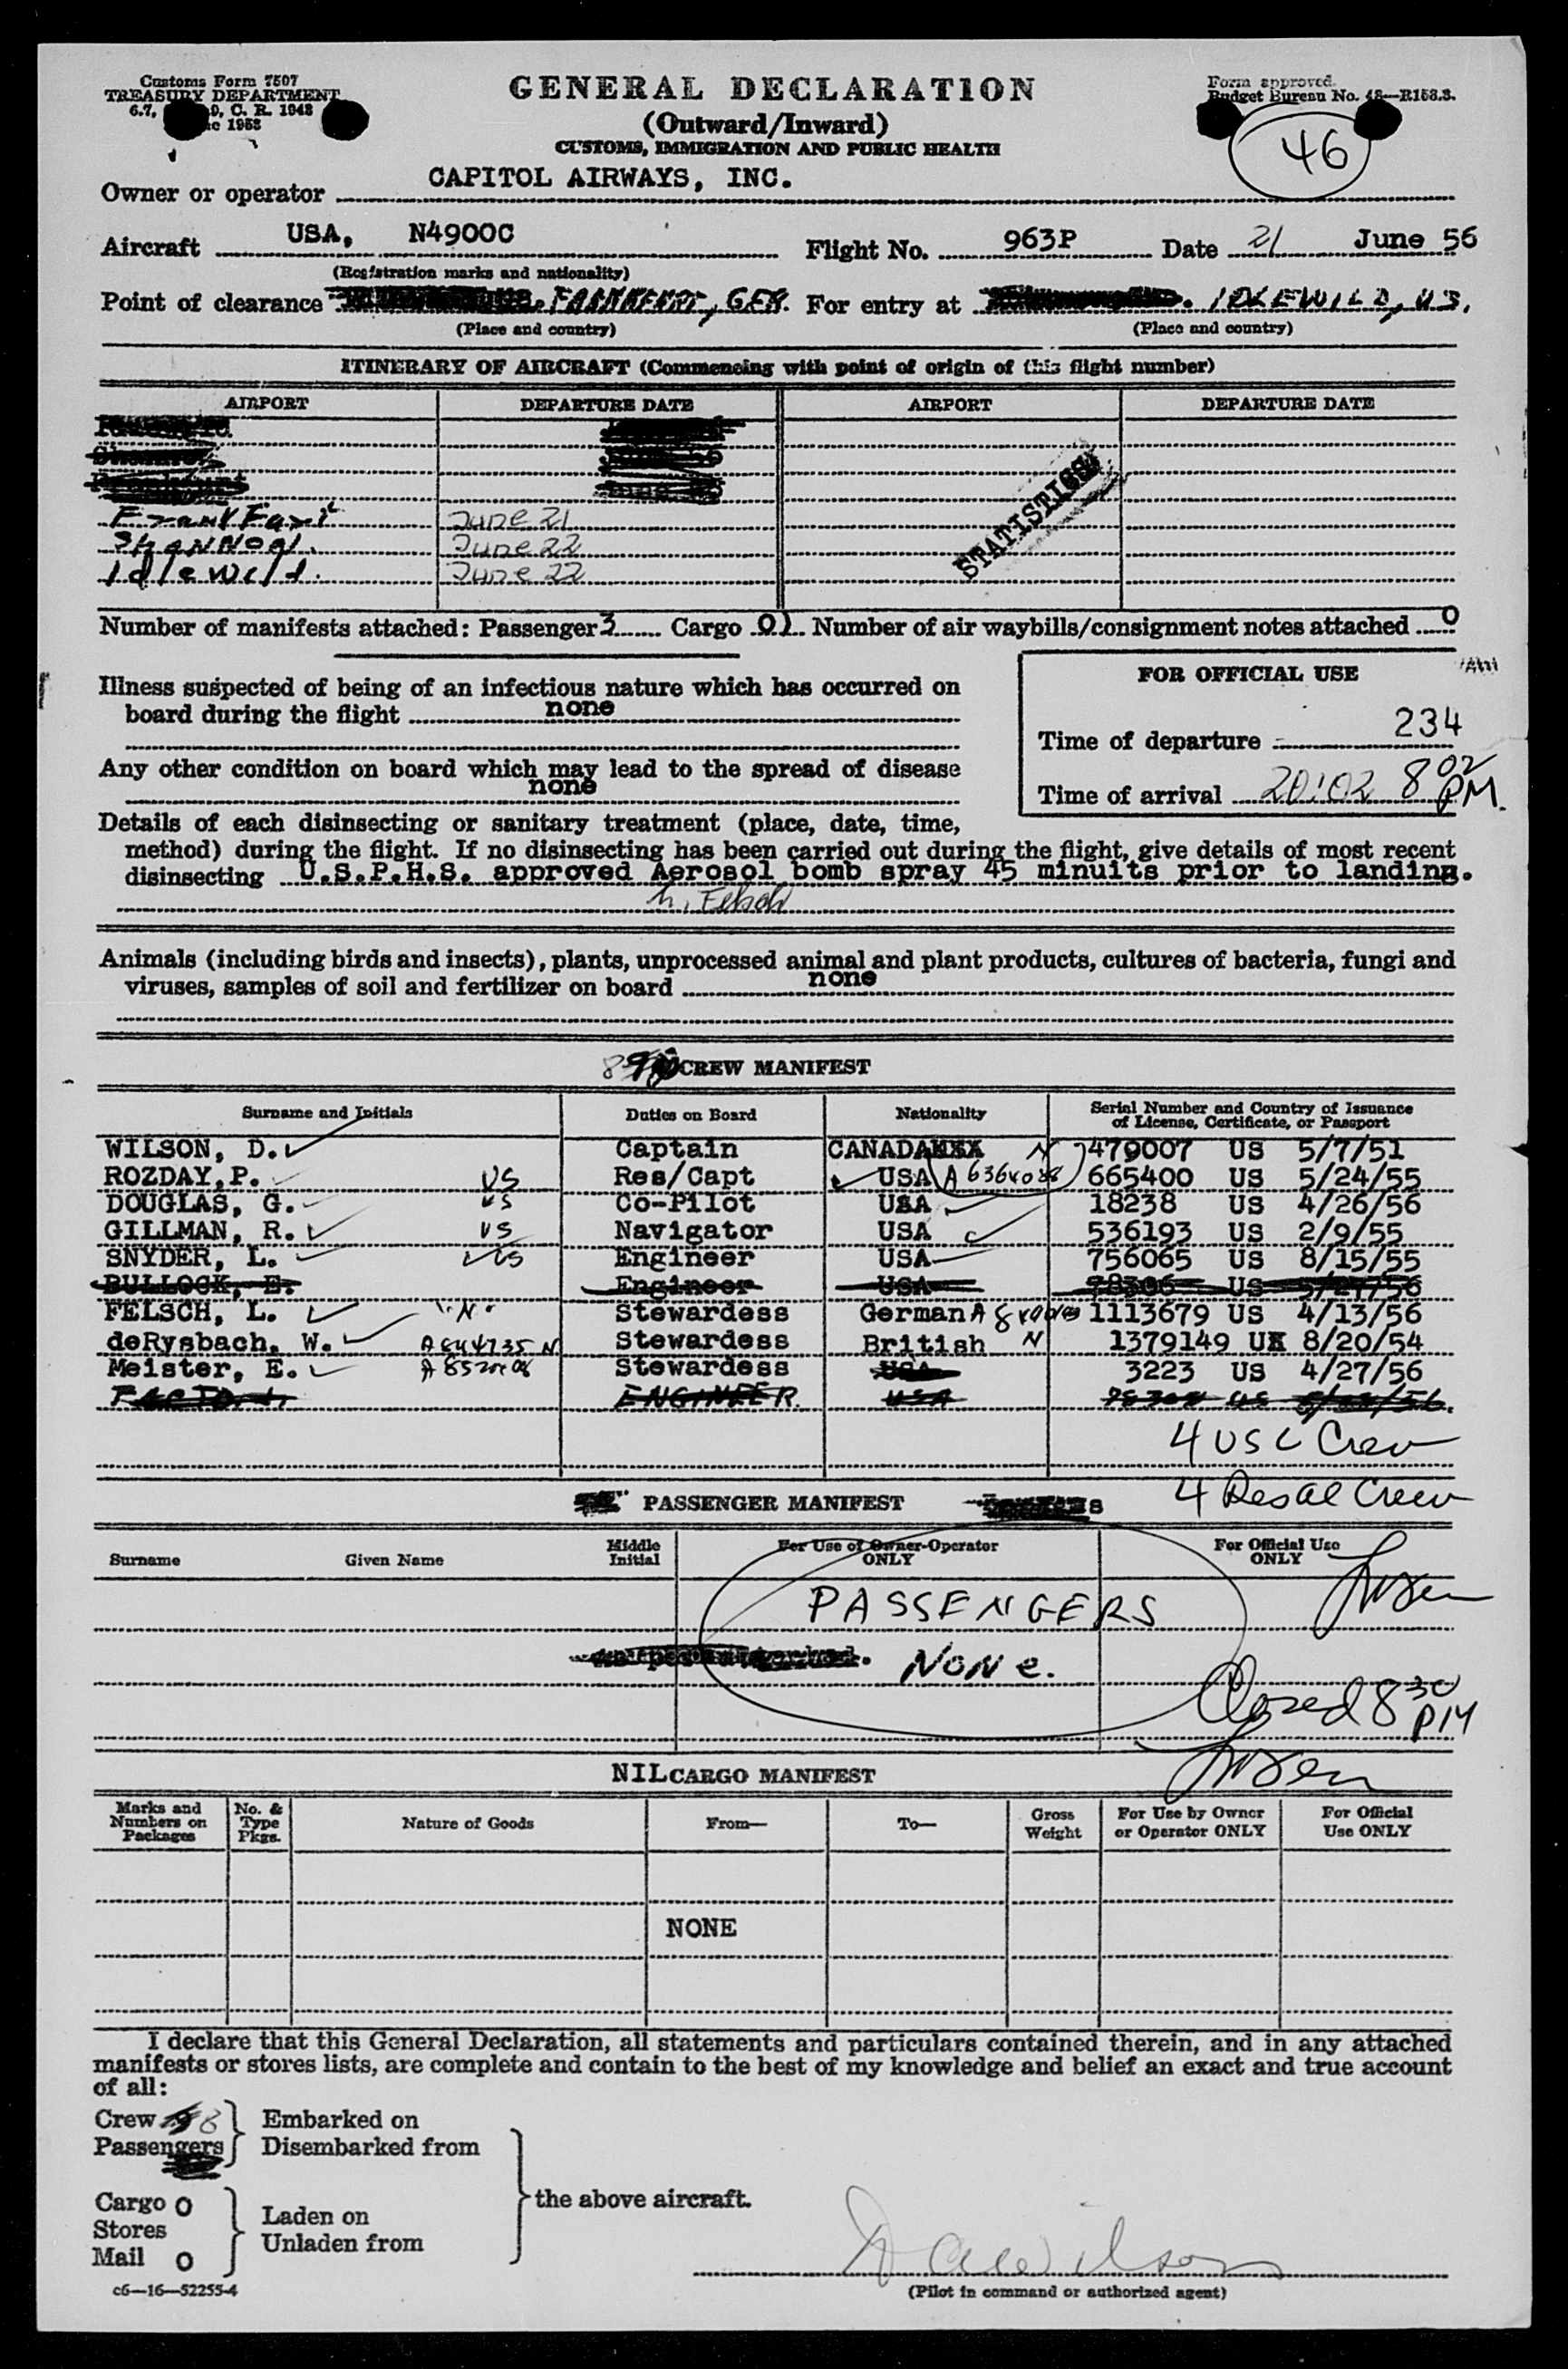 Customs Form 7507
TREASURY DEPARTMENT
GENERAL DECLARATION
(Outward/Inward)
CUSTOMS, IMMIGRATION AND PUBLIC HEALTH
Form approved.
Budget Bureau No. 48—R153.3.
46
Owner or operator CAPITOL AIRWAYS, INC.
Aircraft USA, N4900C Flight No. 963P Date 21 June 56
(Registration marks and nationality)
Point of clearance FRANKFURT, GER. For entry at IDLEWILD, US.
(Place and country) (Place and country)
ITINERARY OF AIRCRAFT (Commencing with point of origin of this flight number)
AIRPORT DEPARTURE DATE AIRPORT DEPARTURE DATE
STATISTICS
Frankfurt June 21
Shannon. June 22
Idlewild. June 22
Number of manifests attached: Passenger 3 Cargo 01 Number of air waybills/consignment notes attached 0
FOR OFFICIAL USE
Illness suspected of being of an infectious nature which has occurred on
board during the flight none
Time of departure 234
Any other condition on board which may lead to the spread of disease
none
Time of arrival 20:02 8 02 PM.
Details of each disinsecting or sanitary treatment (place, date, time,
method) during the flight. If no disinsecting has been carried out during the flight, give details of most recent
disinsecting U.S.P.H.S. approved Aerosol bomb spray 45 minuits prior to landing.
L. Felsch
Animals (including birds and insects), plants, unprocessed animal and plant products, cultures of bacteria, fungi and
viruses, samples of soil and fertilizer on board none
8 CREW MANIFEST
Surname and Initials Duties on Board Nationality Serial Number and Country of Issuance
of License, Certificate, or Passport
WILSON, D. Captain CANADA N 479007 US 5/7/51
ROZDAY, P. US Res/Capt USA A 6364088 665400 US 5/24/55
DOUGLAS, G. US Co-Pilot USA 18238 US 4/26/56
GILLMAN, R. US Navigator USA 536193 US 2/9/55
SNYDER, L. US Engineer USA 756065 US 8/15/55
BULLOCK, E. Engineer USA 78306 US 5/27/56
FELSCH, L. N. Stewardess German 1113679 US 4/13/56
deRysbach, W. A 844735 N Stewardess British N 1379149 UK 8/20/54
Meister, E. Stewardess USA 3223 US 4/27/56
ENGINEER. USA
4 USC Crew
4 Resal Crew
PASSENGER MANIFEST
Surname Given Name Middle
Initial For Use of Owner-Operator
ONLY For Official Use
ONLY
PASSENGERS
NONe.
Closed 8 30 PM
NIL CARGO MANIFEST
Marks and
Numbers on
Packages No. &
Type
Pkgs. Nature of Goods From— To— Gross
Weight For Use by Owner
or Operator ONLY For Official
Use ONLY
NONE
I declare that this General Declaration, all statements and particulars contained therein, and in any attached
manifests or stores lists, are complete and contain to the best of my knowledge and belief an exact and true account
of all:
Crew 8 Embarked on
Passengers Disembarked from
the above aircraft.
Cargo 0
Laden on
Stores
Unladen from
Mail 0
D a Wilson
c6—16—52255-4
(Pilot in command or authorized agent)